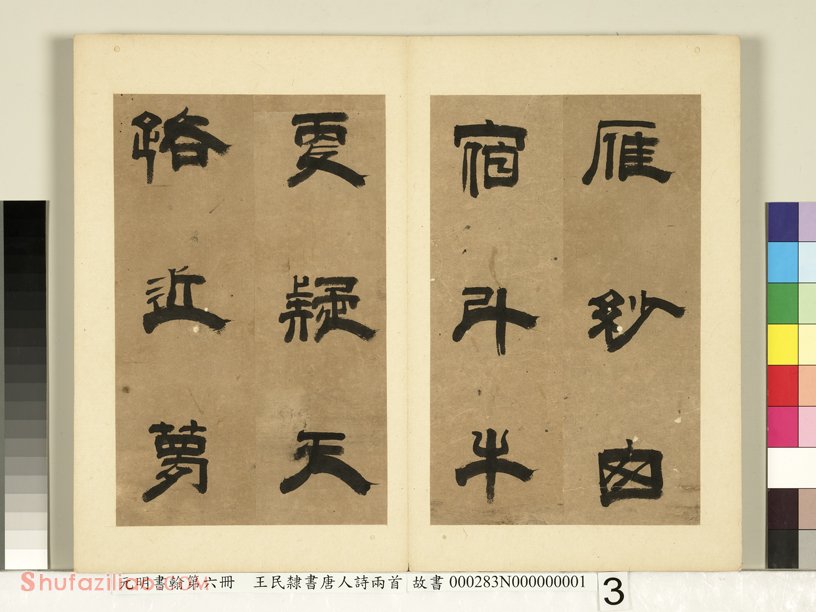 雁紗囪
宿斗牛
更疑天
路近夢
元明書翰第六冊　王民隸書唐人詩兩首　故書 000283N000000001
3
Shufaziliao.com